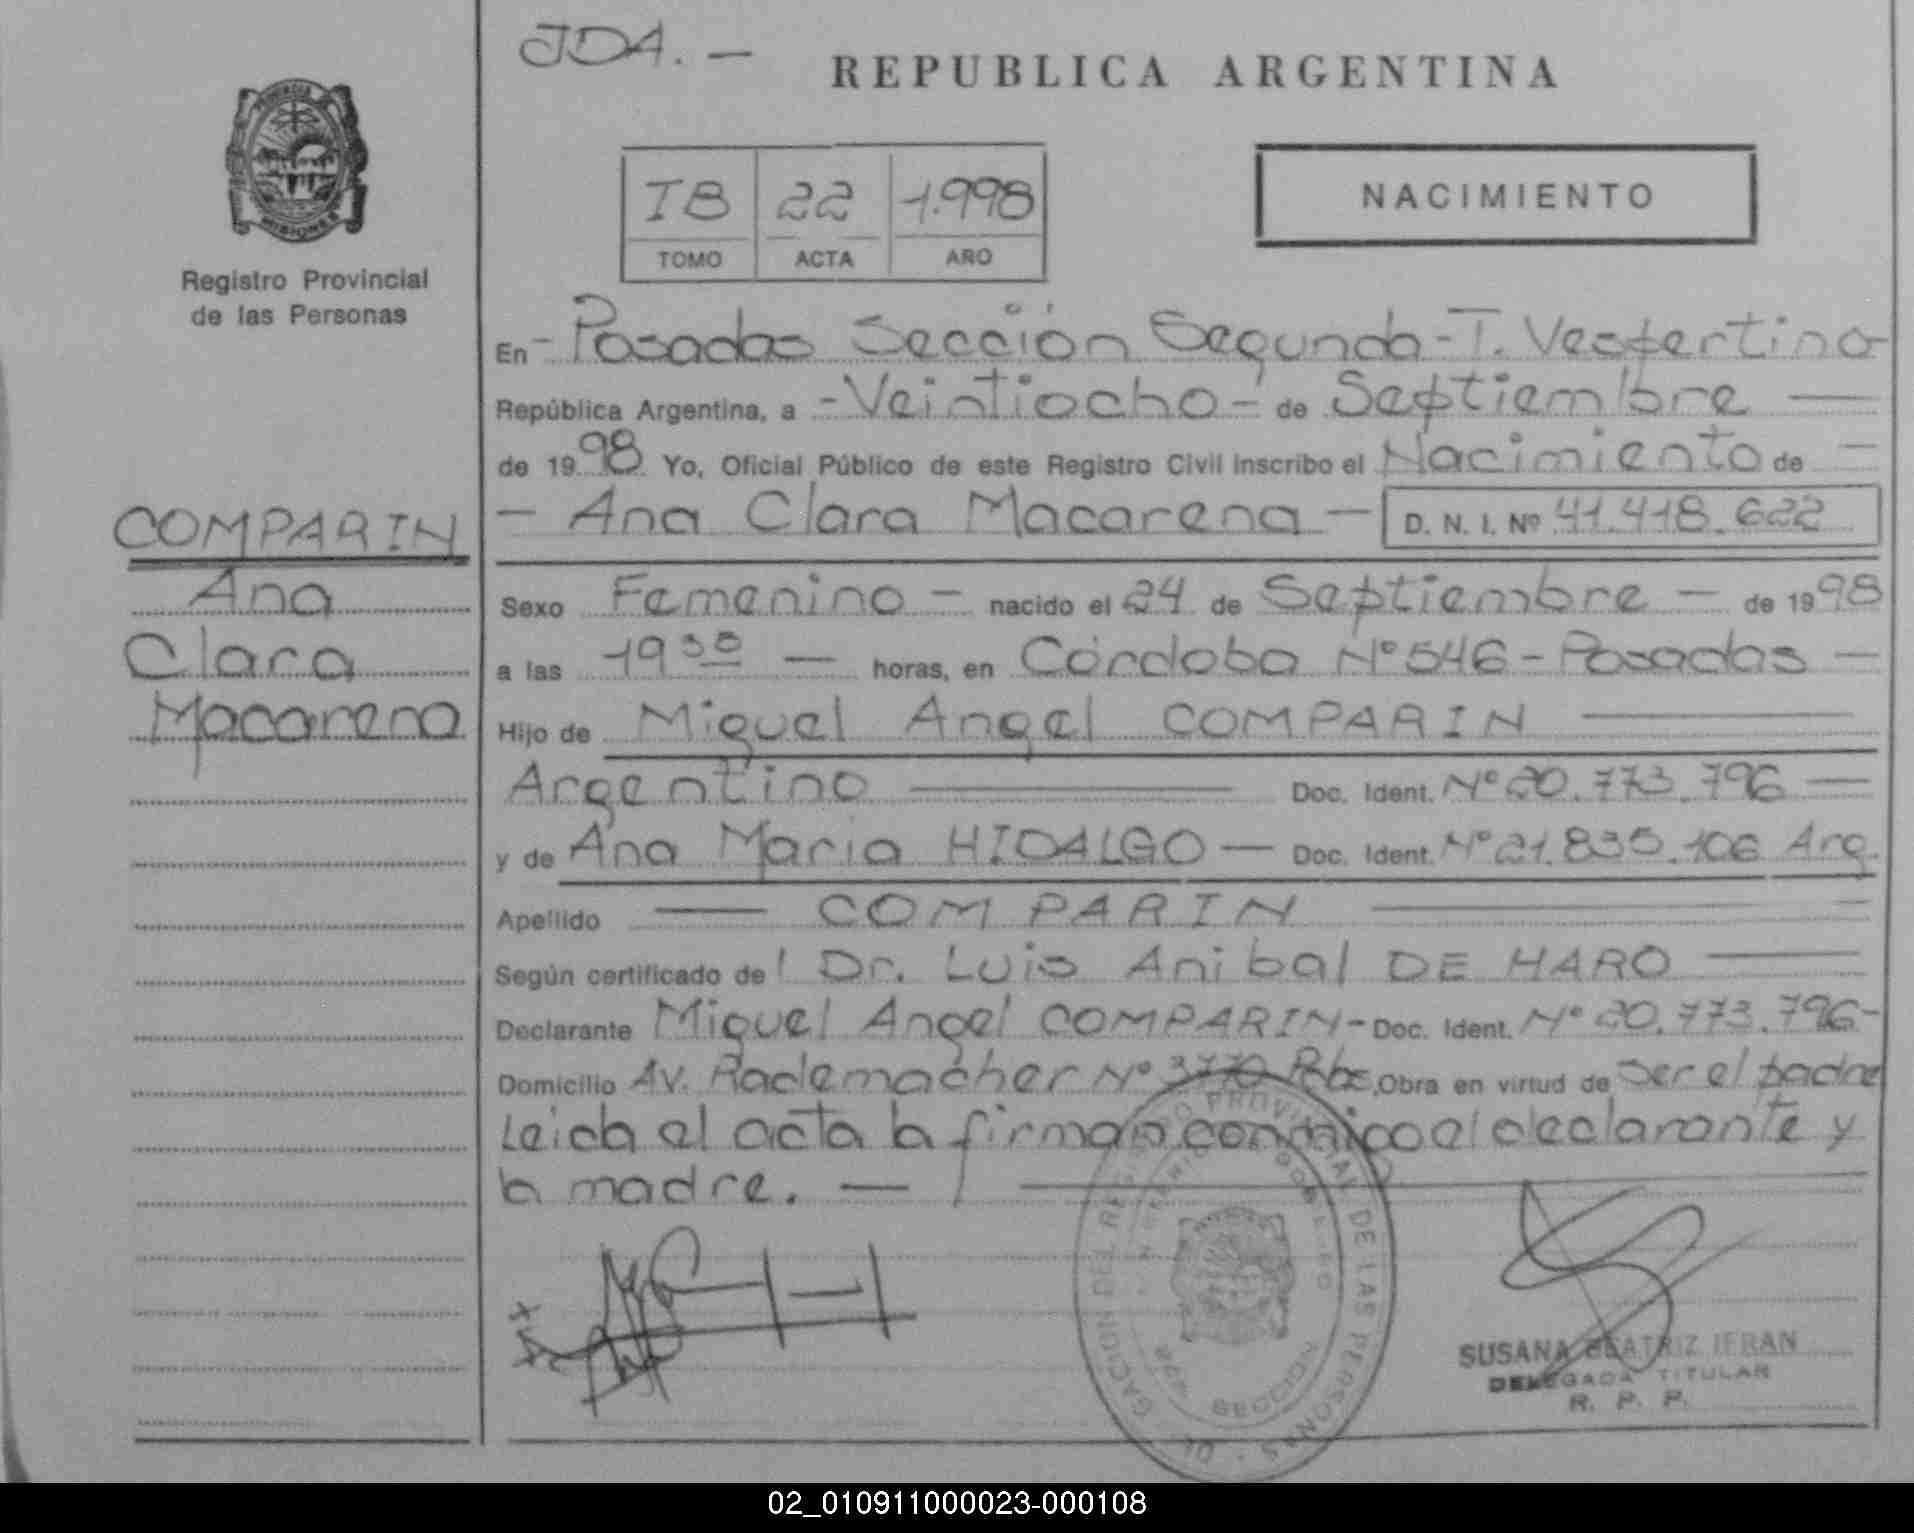 JDA. —
REPUBLICA ARGENTINA
PROVINCIA DE
MISIONES
Registro Provincial
de las Personas
TB 22 1.998
TOMO ACTA AÑO
NACIMIENTO
En - Posadas Sección Segunda - T. Vespertino
República Argentina, a - Veintiocho - de Septiembre —
de 1998 Yo, Oficial Público de este Registro Civil inscribo el Nacimiento de —
— Ana Clara Macarena — D. N. I. Nº 41.418.622
COMPARIN
Ana
Clara
Macarena
Sexo Femenino — nacido el 24 de Septiembre — de 1998
a las 19 30 — horas, en Córdoba Nº 546 - Posadas —
Hijo de Miguel Angel COMPARIN —
Argentino — Doc. Ident. Nº 20.773.796 —
y de Ana Maria HIDALGO — Doc. Ident. Nº 21.835.106 Arg.
Apellido — COMPARIN —
Según certificado de Dr. Luis Anibal DE HARO —
Declarante Miguel Angel COMPARIN - Doc. Ident. Nº 20.773.796 -
Domicilio Av. Rademacher Nº 3770 Pdas, Obra en virtud de ser el padre
Leida el acta la firman conmigo el declarante y
la madre. —
REGISTRO PROVINCIAL DE LAS PERSONAS
POSADAS
SUSANA BEATRIZ IFRAN
DELEGADA TITULAR
R. P. P.
02_010911000023-000108